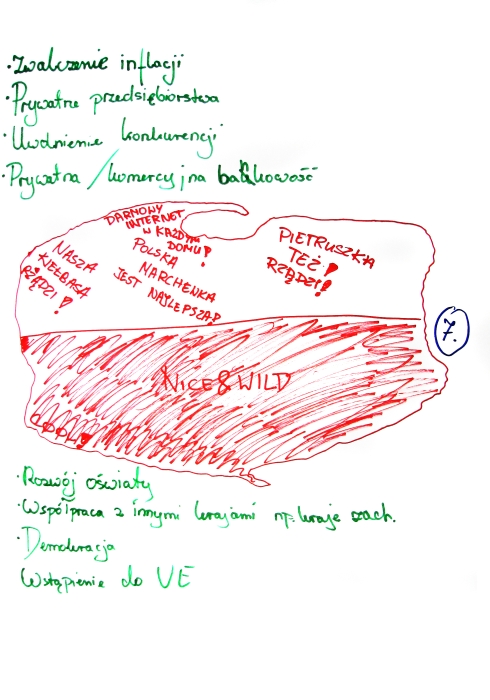 · Zwalczenie inflacji
· Prywatne przedsiębiorstwa
· Uwolnienie konkurencji
· Prywatna / komercyjna bankowość
DARMOWY
INTERNET
W KAŻDYM
DOMU!
NASZA
KIEŁBASA
RZĄDZI!
POLSKA
MARCHENKA
JEST NAJLEPSZA!
PIETRUSZKA
TEŻ!
RZĄDZI!
7.
NICE & WILD
· Rozwój oświaty
· Współpraca z innymi krajami np: kraje zach.
· Demokracja
Wstąpienie do UE